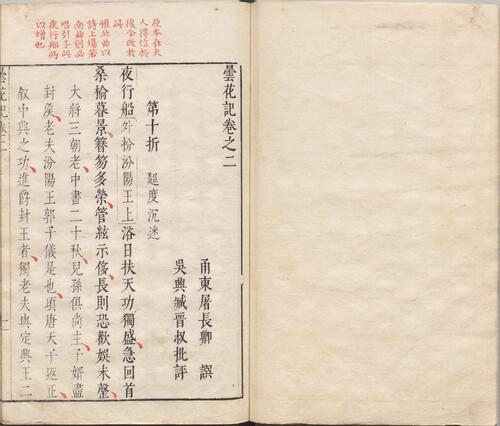 曇花記卷之二
甬東屠長卿 譔
吳興臧晉叔批評
第十折 超度沉迷
夜行船外扮汾陽王上浴日扶天功獨盛急回首
桑榆暮景簪笏多榮管絃示侈長則恐歡娛未罄
大將三朝老中書二十秋兒孫俱尚主子婿盡
封矦老夫汾陽王郭子儀是也頃唐天子返正
敘中興之功進爵封王者獨老夫與定興王二
原本在夫
人得信折
後今改於
此
惟北曲以
詩上場若
南曲則必
唱引子此
夜行船所
以增也
曇花記卷二